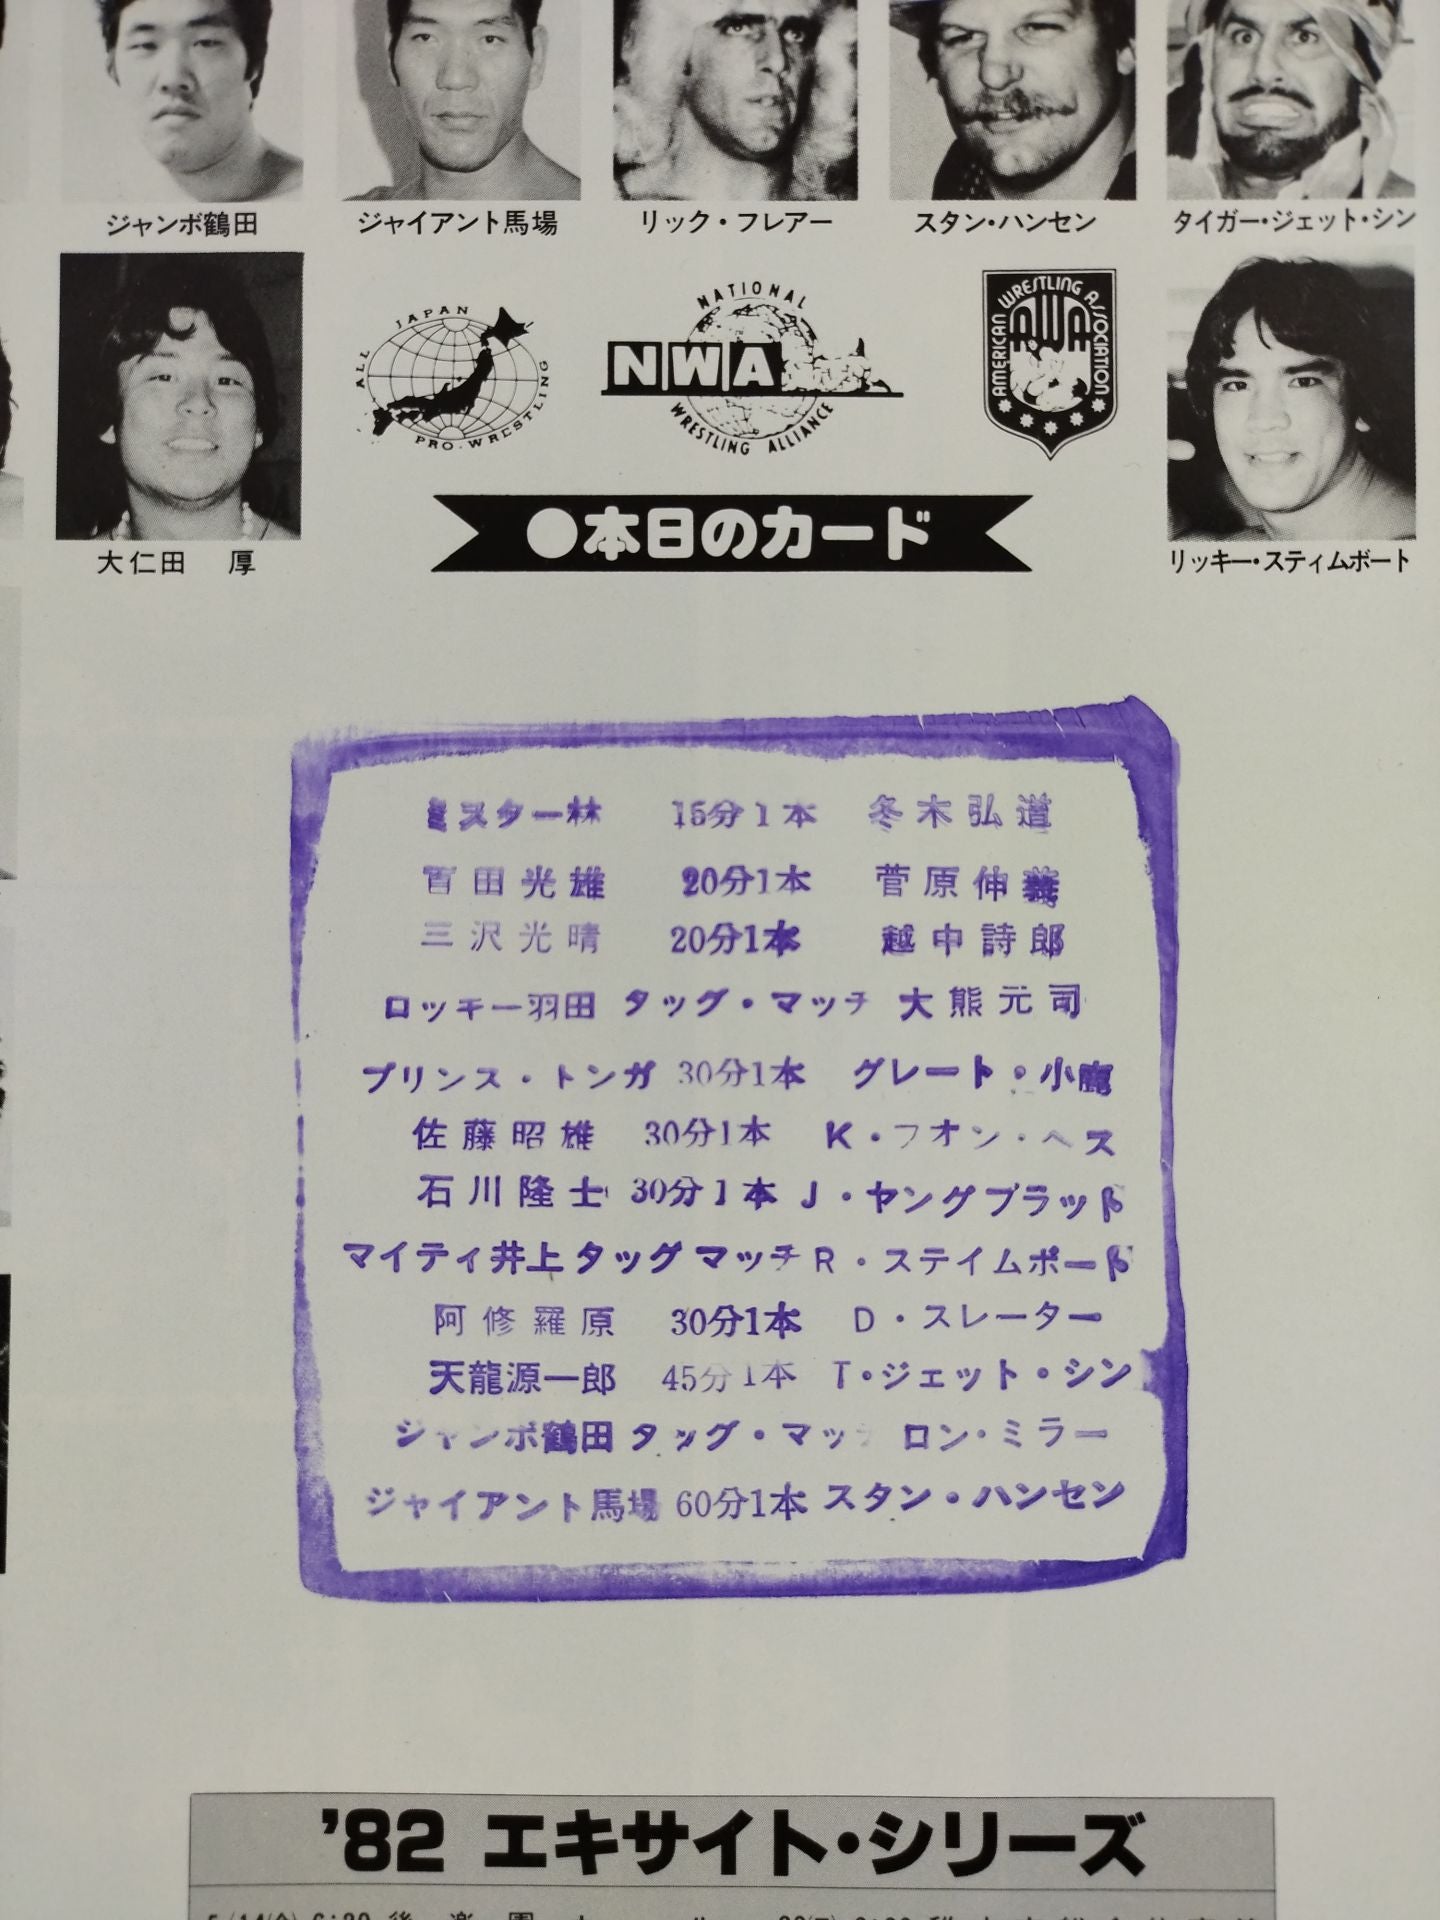 ジャンボ鶴田 ジャイアント馬場 リック・フレアー スタン・ハンセン タイガー・ジェット・シン
ALL JAPAN PRO.WRESTLING
NATIONAL
NWA
WRESTLING ALLIANCE
AMERICAN WRESTLING ASSOCIATION
AWA
大仁田 厚
リッキー・スティムボート
●本日のカード
ミスター林 15分1本 冬木弘道
百田光雄 20分1本 菅原伸義
三沢光晴 20分1本 越中詩郎
ロッキー羽田 タッグ・マッチ 大熊元司
プリンス・トンガ 30分1本 グレート・小鹿
佐藤昭雄 30分1本 K・フオン・ヘス
石川隆士 30分1本 J・ヤングブラッド
マイティ井上 タッグマッチ R・ステイムボート
阿修羅原 30分1本 D・スレーター
天龍源一郎 45分1本 T・ジェット・シン
ジャンボ鶴田 タッグ・マッチ ロン・ミラー
ジャイアント馬場 60分1本 スタン・ハンセン
'82 エキサイト・シリーズ